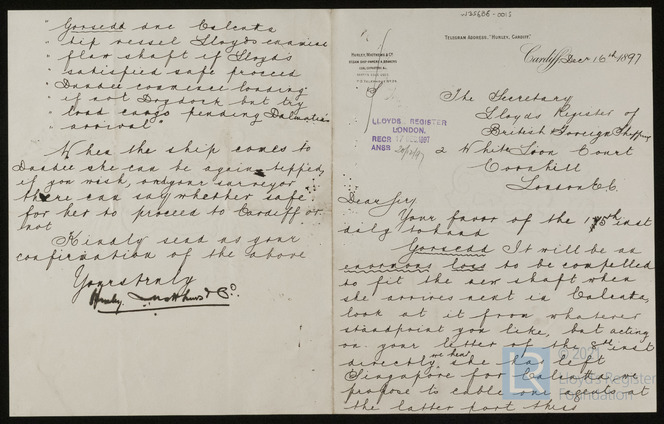 -125686-0013
TELEGRAM ADDRESS, "HURLEY, CARDIFF".
HURLEY, MATTHEWS & Cº
STEAM SHIP OWNERS & BROKERS
Cardiff, Decr 16th 1897
The Secretary
Lloyds Register of
British & Foreign Shipping
2 White Lion Court
Cornhill
London E.C.
LLOYDS REGISTER
LONDON.
RECD 17 DEC 1897
ANSD
Dear Sir
Your favor of the 15th inst
duly to hand
Gorsedd It will be an
enormous loss to be compelled
to fit the new shaft when
she arrives next in Calcutta,
look at it from whatever
standpoint you like, but acting
on your letter of the 8th inst
directly we hear she has left
Singapore for Calcutta we
propose to cable our agents at
the latter port thus
" Gorsedd due Calcutta
" tip vessel Lloyds examine
" flaw shaft if Lloyd's
" satisfied safe proceed
" Dundee commence loading
" if not Drydock but try
" load cargo pending Dalmatia's
" arrival"
When the ship comes to
Dundee she can be again tipped,
if you wish, and your surveyor
there can say whether safe
for her to proceed to Cardiff or
not
Kindly send us your
confirmation of the above
Yours truly
Hurley, Matthews & Cº
LR
© 2021
Lloyd's Register
Foundation